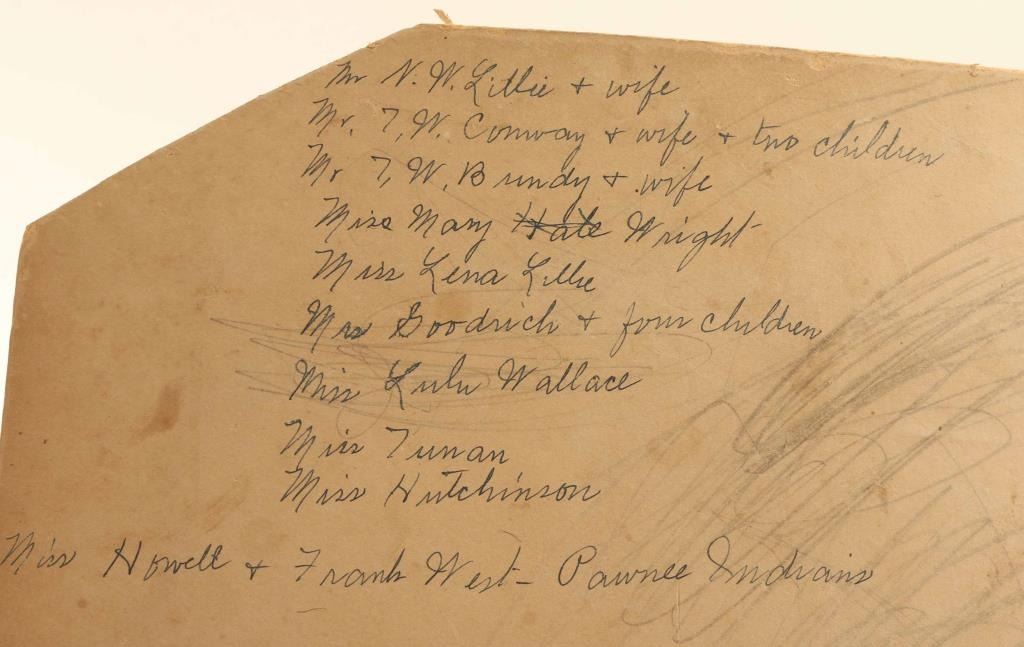 Mr N. W. Lillie + wife
Mr. T. W. Conway + wife + two children
Mr T. W. Bundy + wife
Miss Mary Hale Wright
Miss Lena Lillie
Mrs Goodrich + four children
Miss Lulu Wallace
Miss
Miss Hutchinson
Miss Howell + Frank West - Pawnee Indians